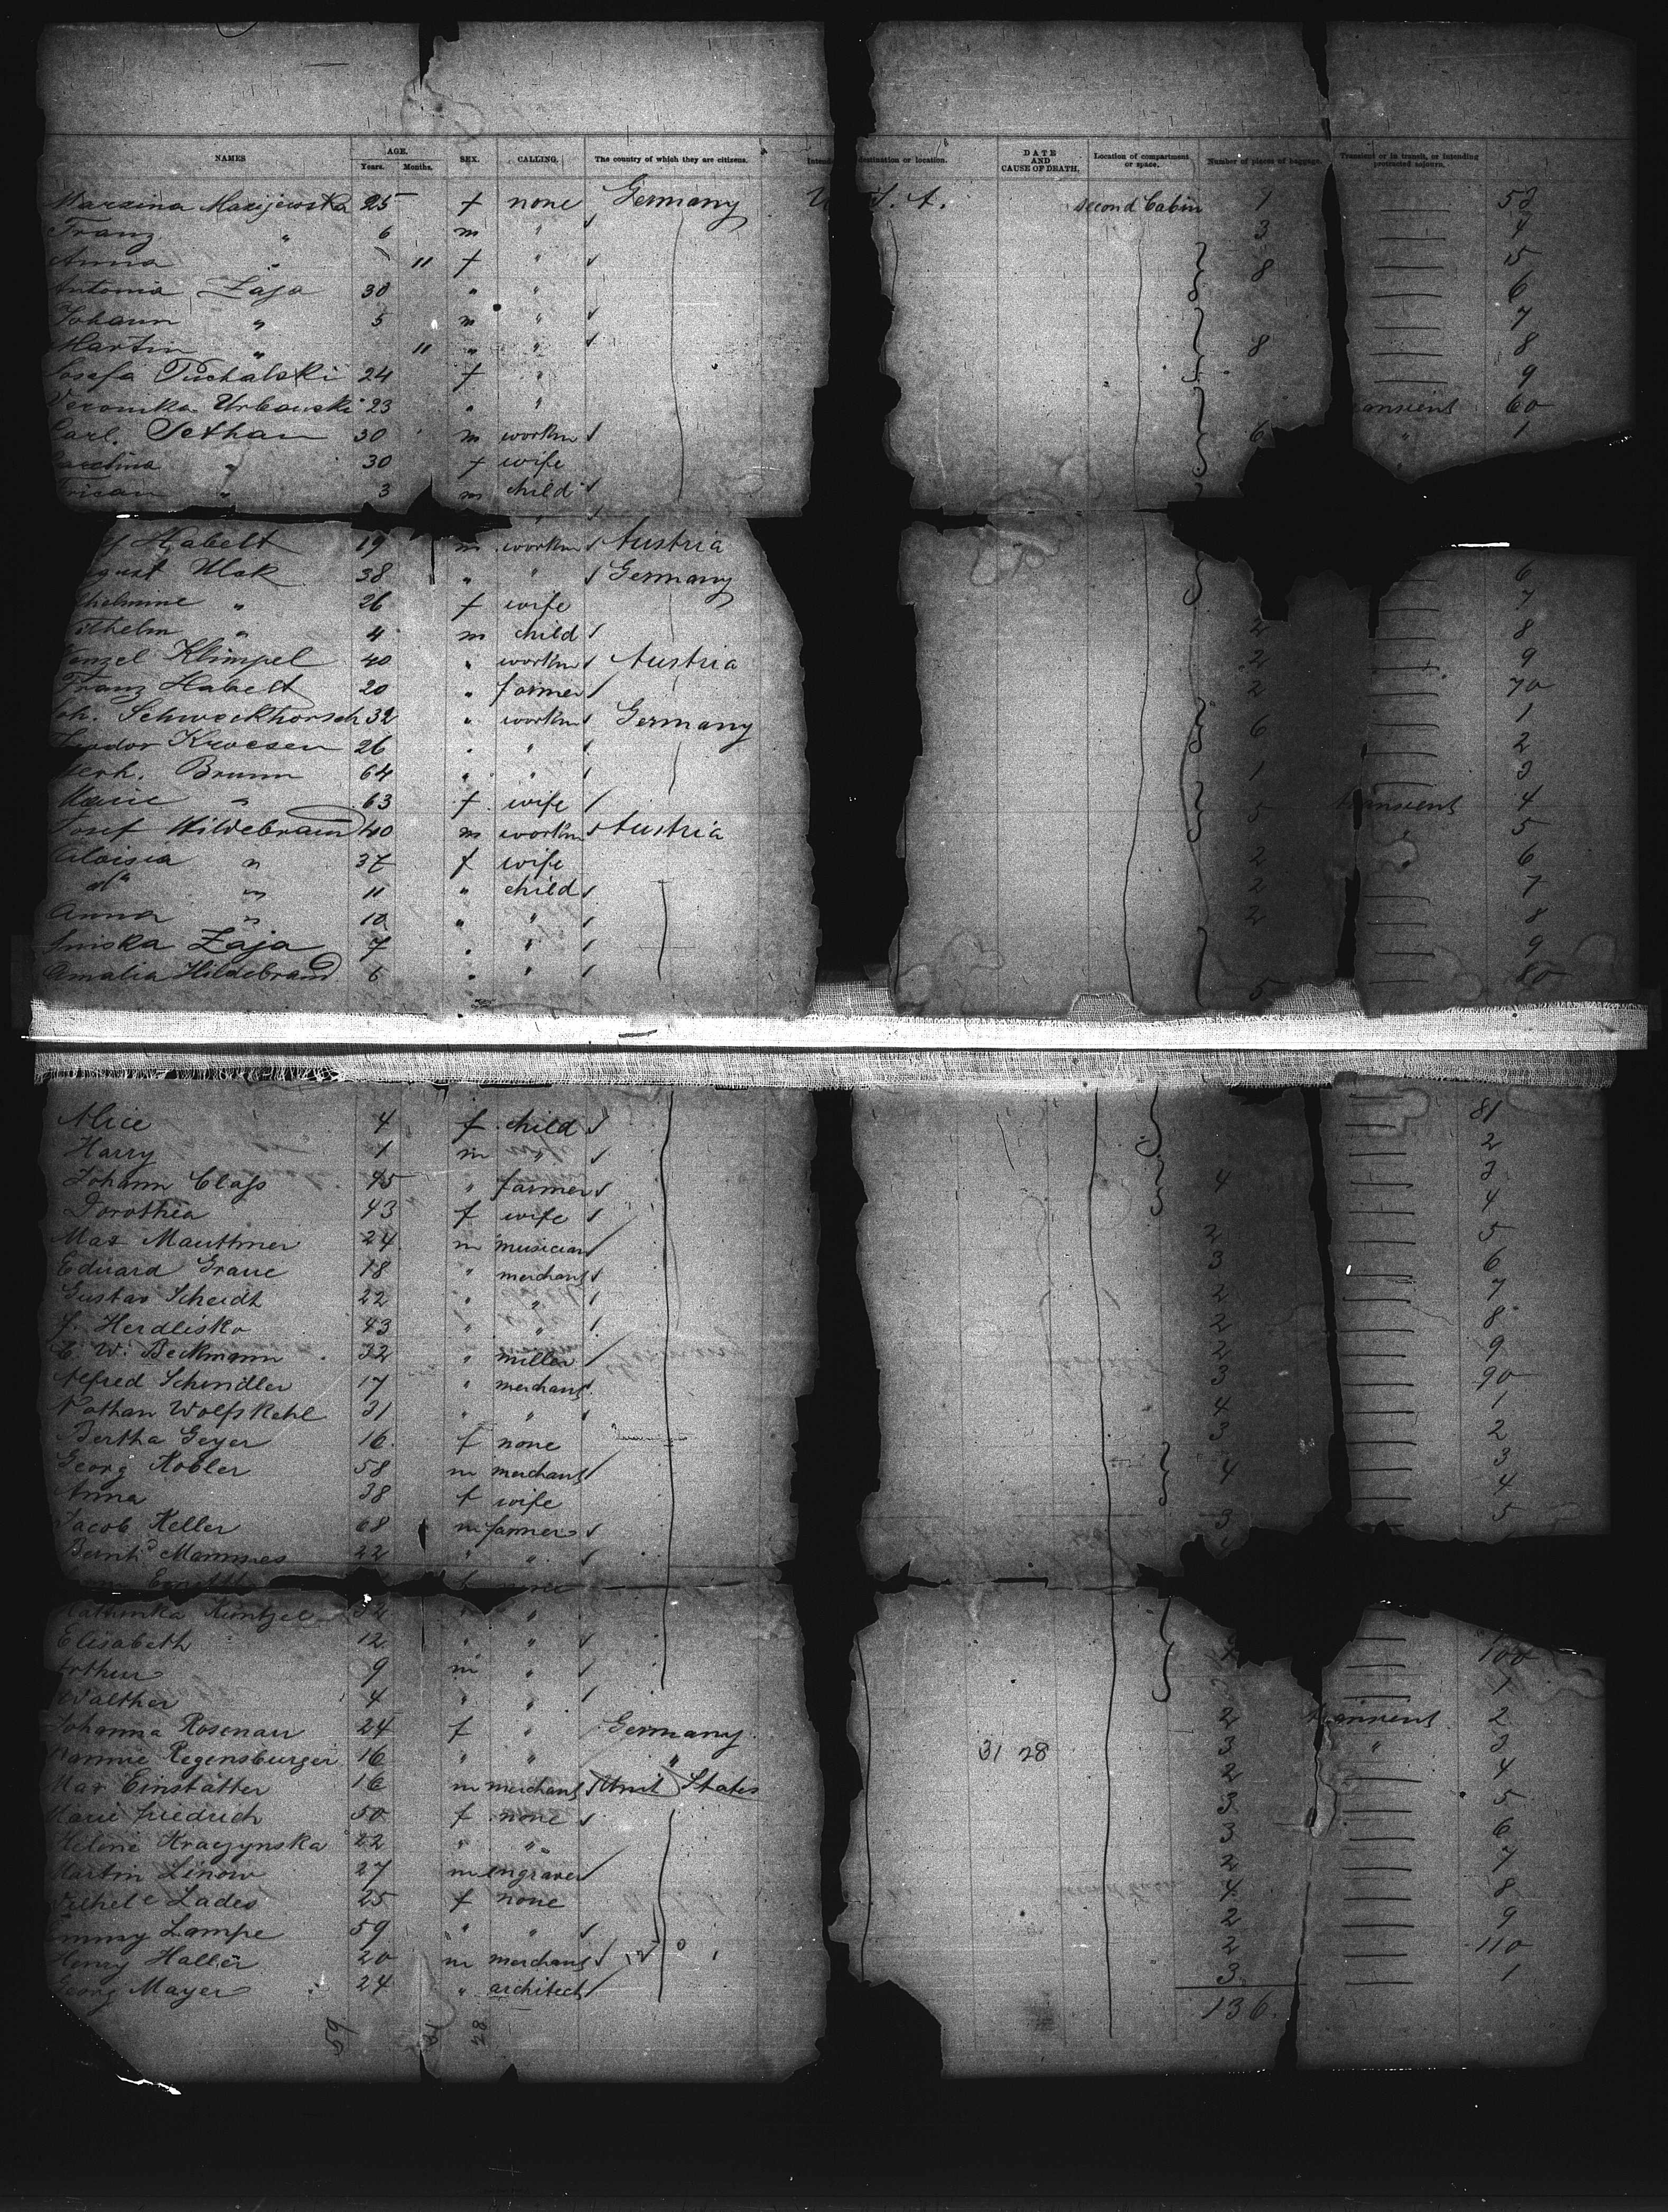 NAMES AGE. Years. Months. SEX. CALLING. The country of which they are citizens. Intend destination or location. DATE AND CAUSE OF DEATH. Location of compartment or space. Number of pieces of baggage. Transient or in transit, or intending protracted sojourn.
25 f none Germany U S. A. second Cabin 1 53
Franz " 6 m " 3 4
Anna " 11 f " 8 5
Antonia Zaja 30 " " 6
Johann " 5 m " 7
Martin " 11 " " 8 8
Josefa Puchalski 24 f " 9
Veronika Urbanski 23 " " ansient 60
Carl. Sethan 30 m workm 6 " 1
Carolina " 30 f wife
3 m child
Habelt 19 m workm Austria
gust Ulak 38 " " Germany 6
helmine " 26 f wife 7
ilhelm " 4 m child 2 8
enzel Klimpel 40 " workm Austria 2 9
Franz Habelt 20 " farmer 2 70
oh. Schweckhorsch 32 " workm Germany 6 1
Teodor Kroesen 26 " " 2
Gerh. Brunn 64 " " 1 3
Marie " 63 f wife 5 transient 4
Josef Hildebrand 40 m workm Austria " 5
Aloisia " 37 f wife 2 " 6
do " 11 " child 2 7
Anna " 10 " " 2 8
Zaja 7 " " 9
Amalia Hildebrand 6 " " 5 80
Alice 4 f child 81
Harry 1 m " 2
Johann Class 45 " farmer 4 3
Dorothea 43 f wife 4
Max Mauthner 24 m musician 2 5
Eduard Graue 18 " merchant 3 6
Gustav Scheidt 22 " " 2 7
J. Herdlisko 43 " " 2 8
E. W. Beckmann 32 " miller 2 9
Alfred Schindler 17 " merchant 3 90
Nathan Wolfskehl 31 " " 4 1
Bertha Geyer 16 f none 3 2
Georg Kobler 58 m merchant 4 3
Anna 38 f wife 4
Jacob Keller 68 m farmer 3 5
Bernhd Mammes 22 " "
Kathinka Küntzel 32 " "
Elisabeth 12 " " 100
Arthur 9 m " 1
Walther 4 " "
Johanna Rosenau 24 f " Germany 2 transient 2
Nannie Regensburger 16 " " " 31 28 3 " 3
Max Einstätter 16 m merchant Unit States 2 4
Marie Friedrich 50 f none 3 5
Helene Kraczynska 22 " " 3 6
Martin Linow 27 m engraver 2 7
Wilhele Lades 25 f none 4 8
Emmy Lampe 59 " " 2 9
Henry Haller 20 m merchant 2 110
Georg Mayer 24 " architect 3 1
136.
59 31 28